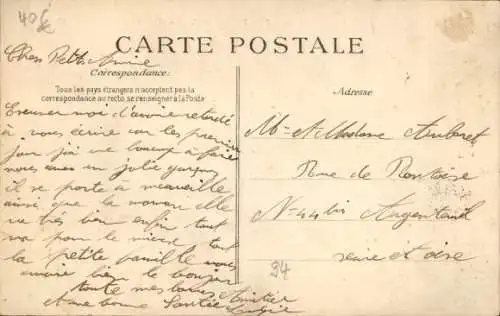 40
CARTE POSTALE
Chers Petits Amie
Correspondance:
Tous les pays étrangers n'acceptent pas la
correspondance au recto, se renseigner à la Poste
Adresse
Excuser moi d'avoir retardé
à vous écrire car les premier
jour j'ai eu beaucoup a faire
nous avons un jolie garçon
il se porte a merveille
ainsi que la maman elle
va très bien enfin tout
va pour le mieux tout
la petite famille vous
envoie bien le bonjour
toute mes amitier
bonne Santée
Mr et Madame
Rue de Pontoise
No 44 bis Argenteuil
seine et oise
94